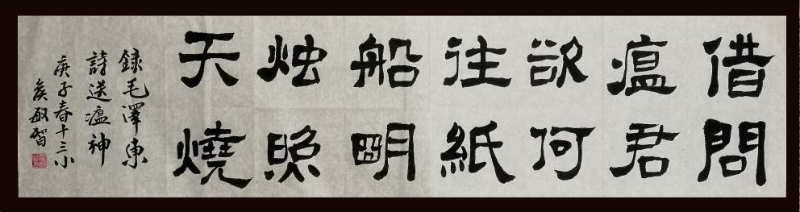 借問
瘟君
欲何
往紙
船明
烛照
天燒
錄毛澤東
詩送瘟神
庚子春十三小
侯敏智